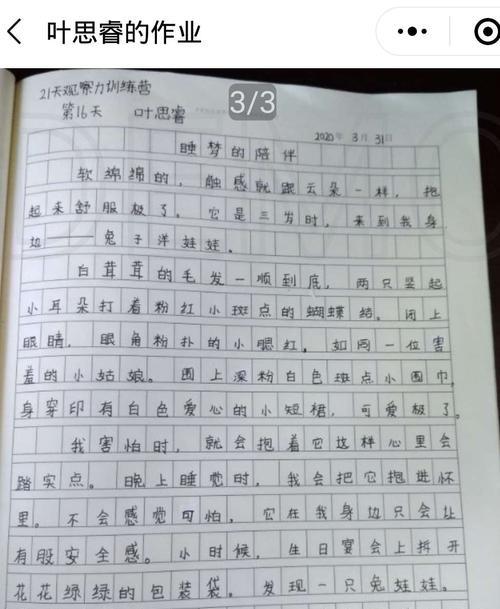 叶思睿的作业
21天观察力训练营
3/3
第16天 叶思睿
2020年 3月 31日
睡梦的陪伴
软绵绵的，触感就跟云朵一样，抱
起来舒服极了。它是三岁时，来到我身
边——兔子洋娃娃。
白茸茸的毛发一顺到底，两只竖起
小耳朵打着粉红小斑点的蝴蝶结。闭上
眼睛，眼角粉扑的小腮红，如同一位害
羞的小姑娘。围上深粉白色斑点小围巾，
身穿印有白色爱心的小短裙，可爱极了。
我害怕时，就会抱着它这样心里会
踏实点。晚上睡觉时，我会把它抱进怀
里。不会感觉可怕，它在我身边只会让
有股安全感。小时候，生日宴会上拆开
花花绿绿的包装袋。发现一只兔娃娃。